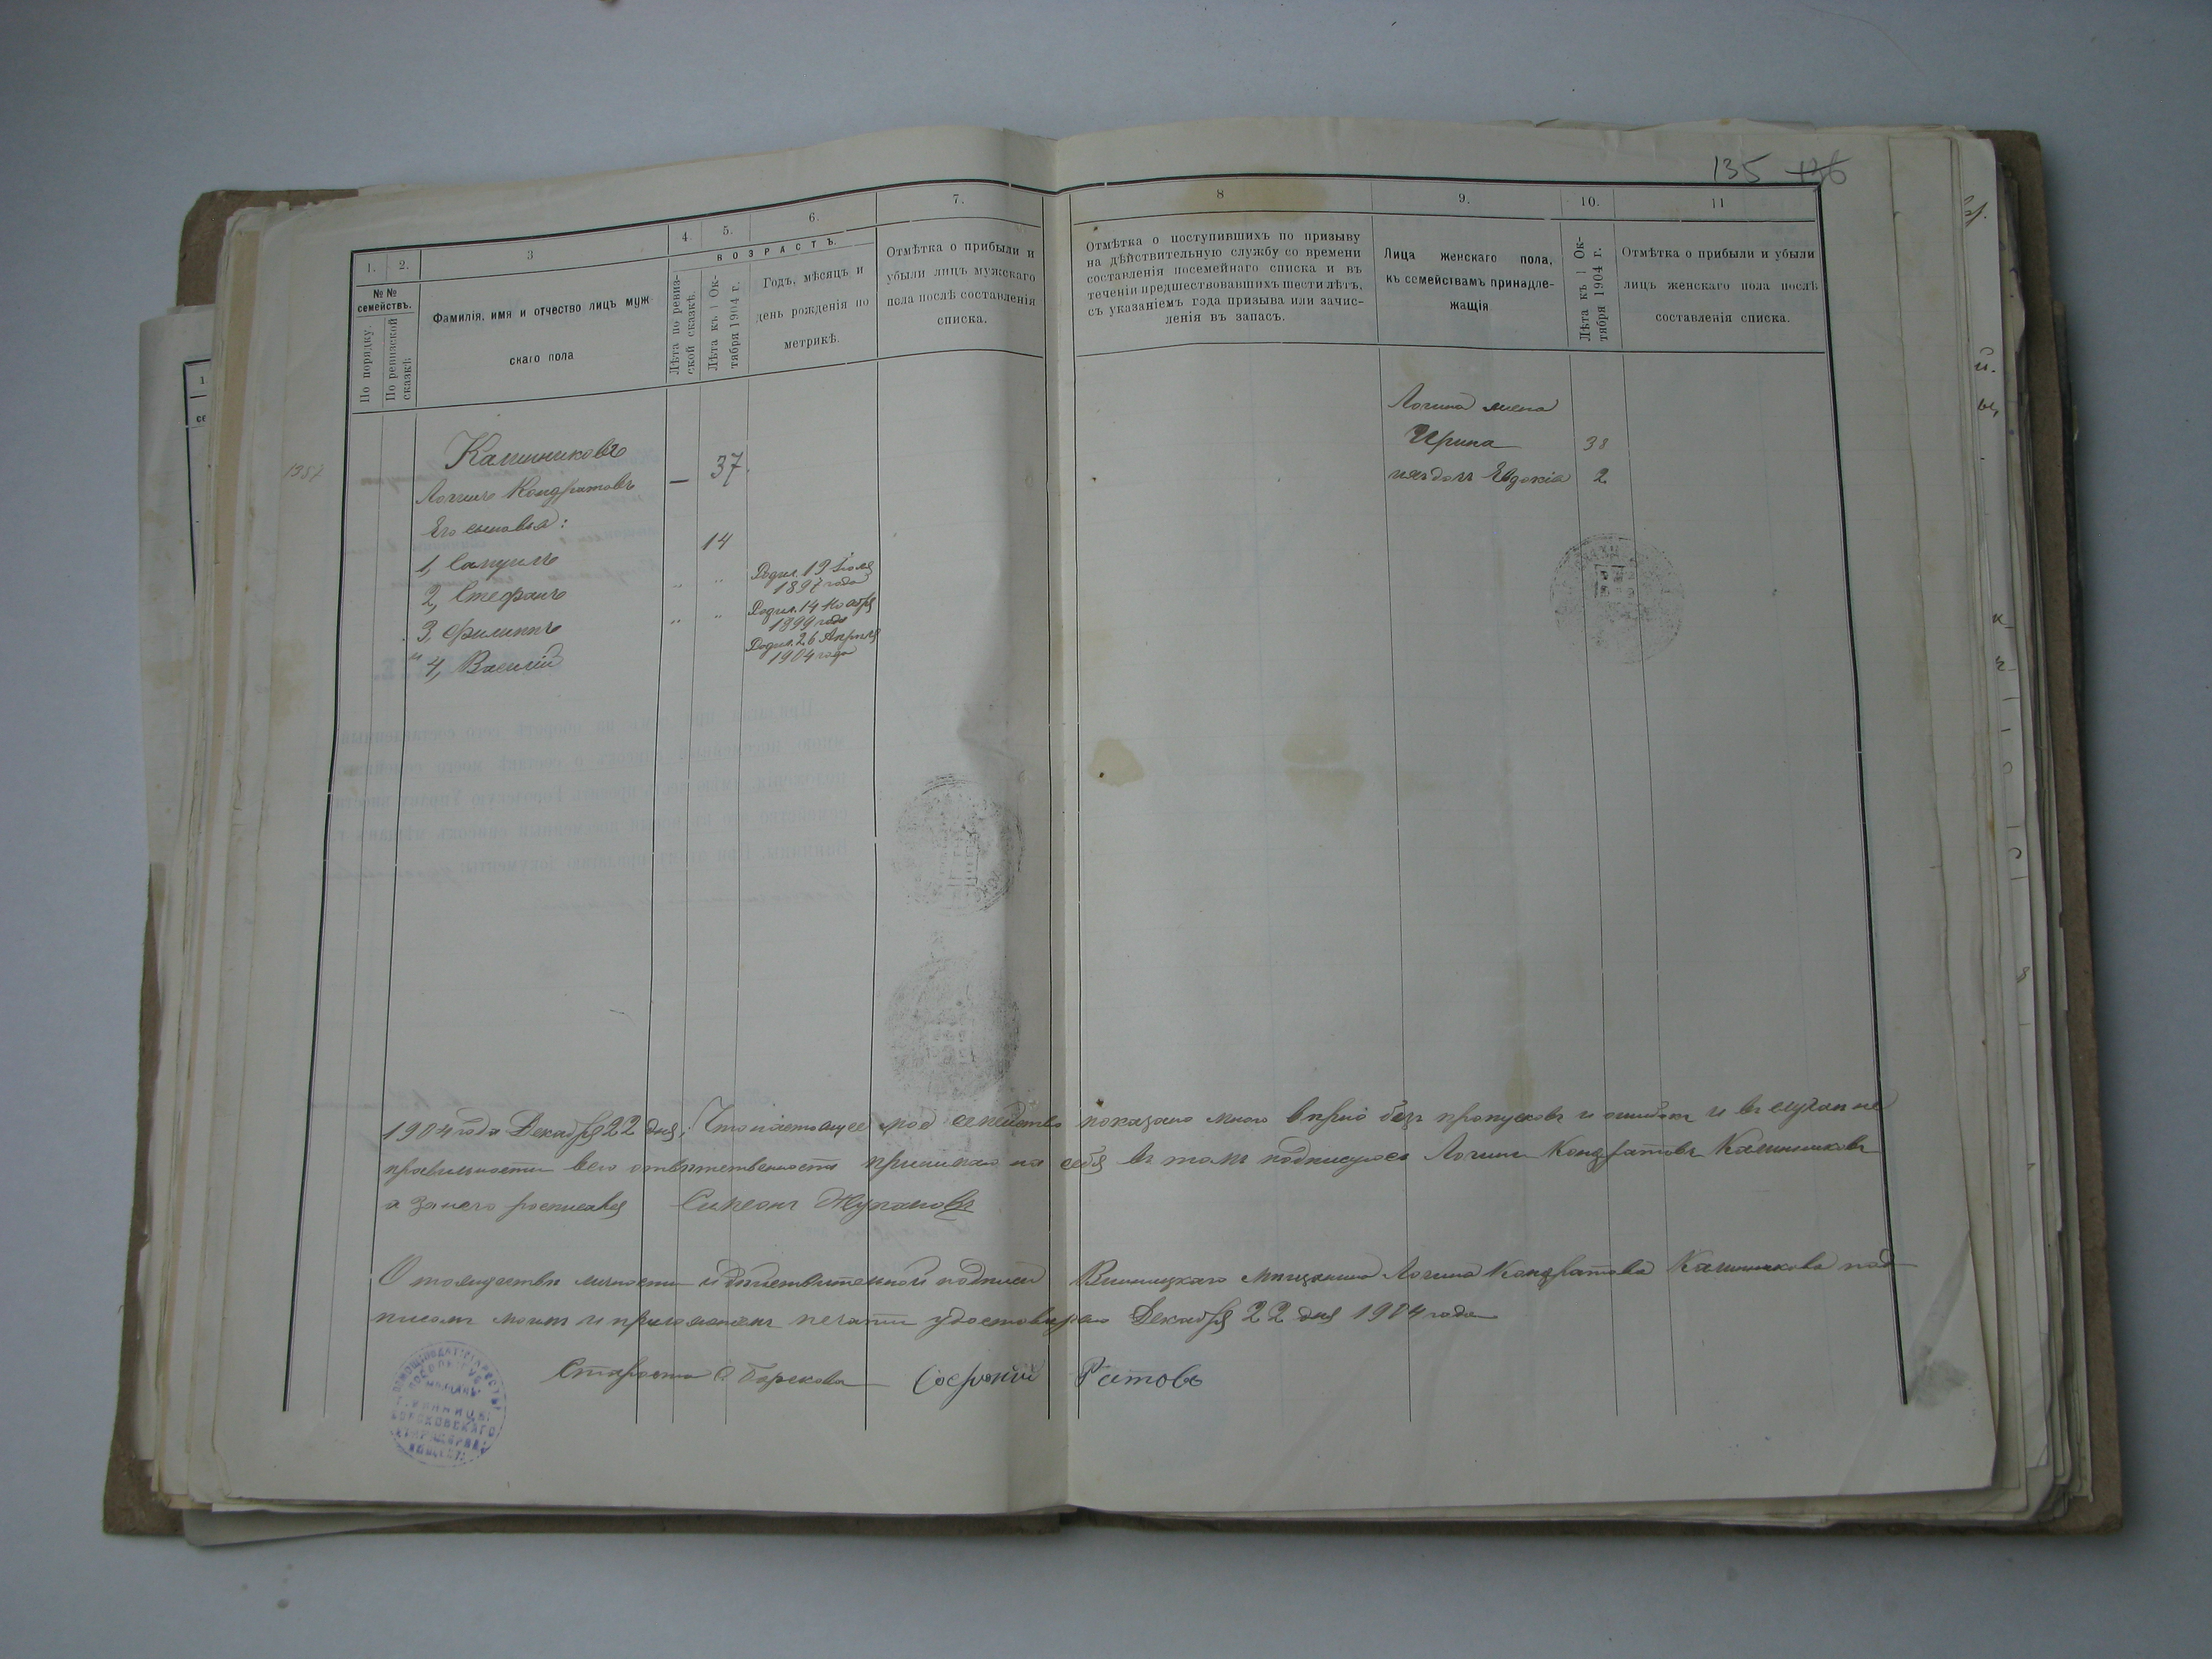 135 136
1.
2.
3
4.
5.
6.
7.
8
9.
10.
11
№ №
семействъ.
По порядку.
По ревизской
сказкѣ
Фамилія, имя и отчество лицъ муж-
скаго пола
ВОЗРАСТЪ.
Лѣта по ревиз-
ской сказкѣ.
Лѣта къ 1 Ок-
тября 1904 г.
Годъ, мѣсяцъ и
день рожденія по
метрикѣ.
Отмѣтка о прибыли и
убыли лицъ мужскаго
пола послѣ составленія
списка.
Отмѣтка о поступившихъ по призыву
на дѣйствительную службу со времени
составленія посемейнаго списка и въ
теченіи предшествовавшихъ шести лѣтъ,
съ указаніемъ года призыва или зачис-
ленія въ запасъ.
Лица женскаго пола,
къ семействамъ принадле-
жащія
Лѣта къ 1 Ок-
тября 1904 г.
Отмѣтка о прибыли и убыли
лицъ женскаго пола послѣ
составленія списка.
1357
Калинниковъ
Логинъ Кондратовъ — 37.
Его сыновья:
1, Самуилъ 14
2, Стефанъ " " Родил. 19 Іюля
1897 года
3, Филиппъ " " Родил. 14 Ноября
1899 года
4, Василій Родил. 26 Апрѣля
1904 года
Логина жена
Ирина 38
ихъ дочь Евдокія 2
1904 года Декабря 22 дня, Что настоящее мое семейство показано мною вѣрно безъ пропусковъ и ошибокъ и въ случаи не
правильности всю отвѣтственность принимаю на себя въ томъ подписуюсь Логинъ Кондратовъ Калинниковъ
а за него росписался Симеонъ Жупановъ
О тождествѣ личности и дѣйствительной подписи Винницкаго мѣщанина Логина Кондратова Калинникова под-
писомъ моимъ и приложеніемъ печати удостовѣряю Декабря 22 дня 1904 года
Староста С Борскова Ратовъ